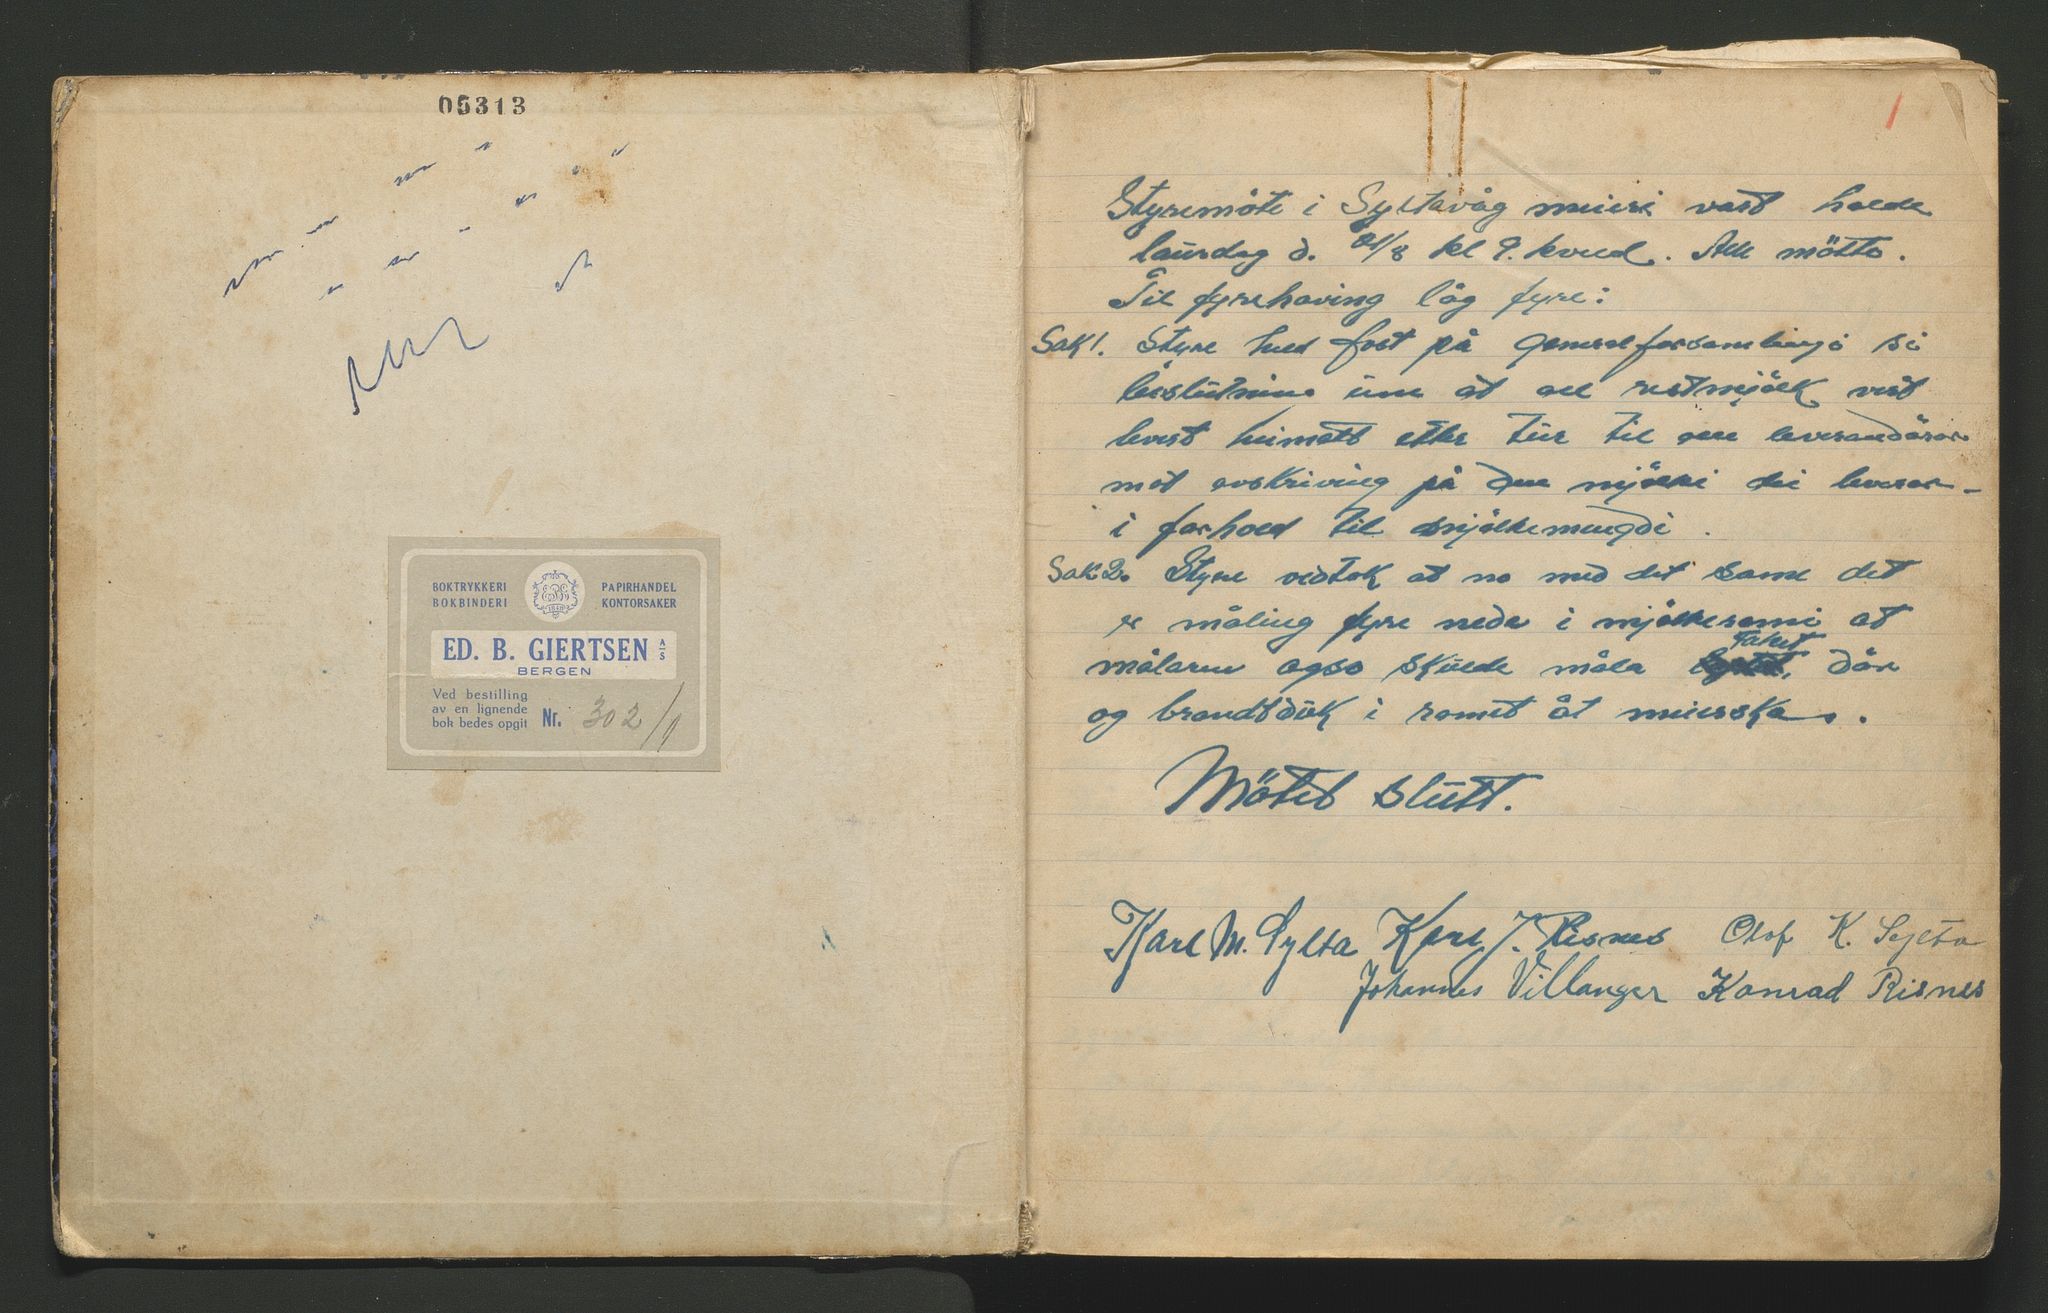 05313
BOKTRYKKERI
BOKBINDERI
PAPIRHANDEL
KONTORSAKER
1848
ED. B. GIERTSEN A/S
BERGEN
Ved bestilling
av en lignende
bok bedes opgit Nr. 302/1
1
Styremöte i Syltavåg meieri vart halde
laurdag d. 21/8 kl 9. kveld. Alle mötte.
Til fyrehaving låg fyre:
Sak 1. Styre held fast på generalforsamlingi si
beslutning um at all restmjölk vert
levert heimatt etter tur til alle leverandörar
mot avskriving på den mjölki dei leverar
i forhold til mjölkemengdi.
Sak 2. Styre vedtok at no med det same det
er måling fyre nede i mjölkeromi at
målaren ogso skulde måla Taket, dör
og brandtduk i romet åt meierska.
Mötet slutt.
Karl M. Sylta Karl J. Risnes Olaf K. Sylta
Johannes Villanger Konrad Risnes